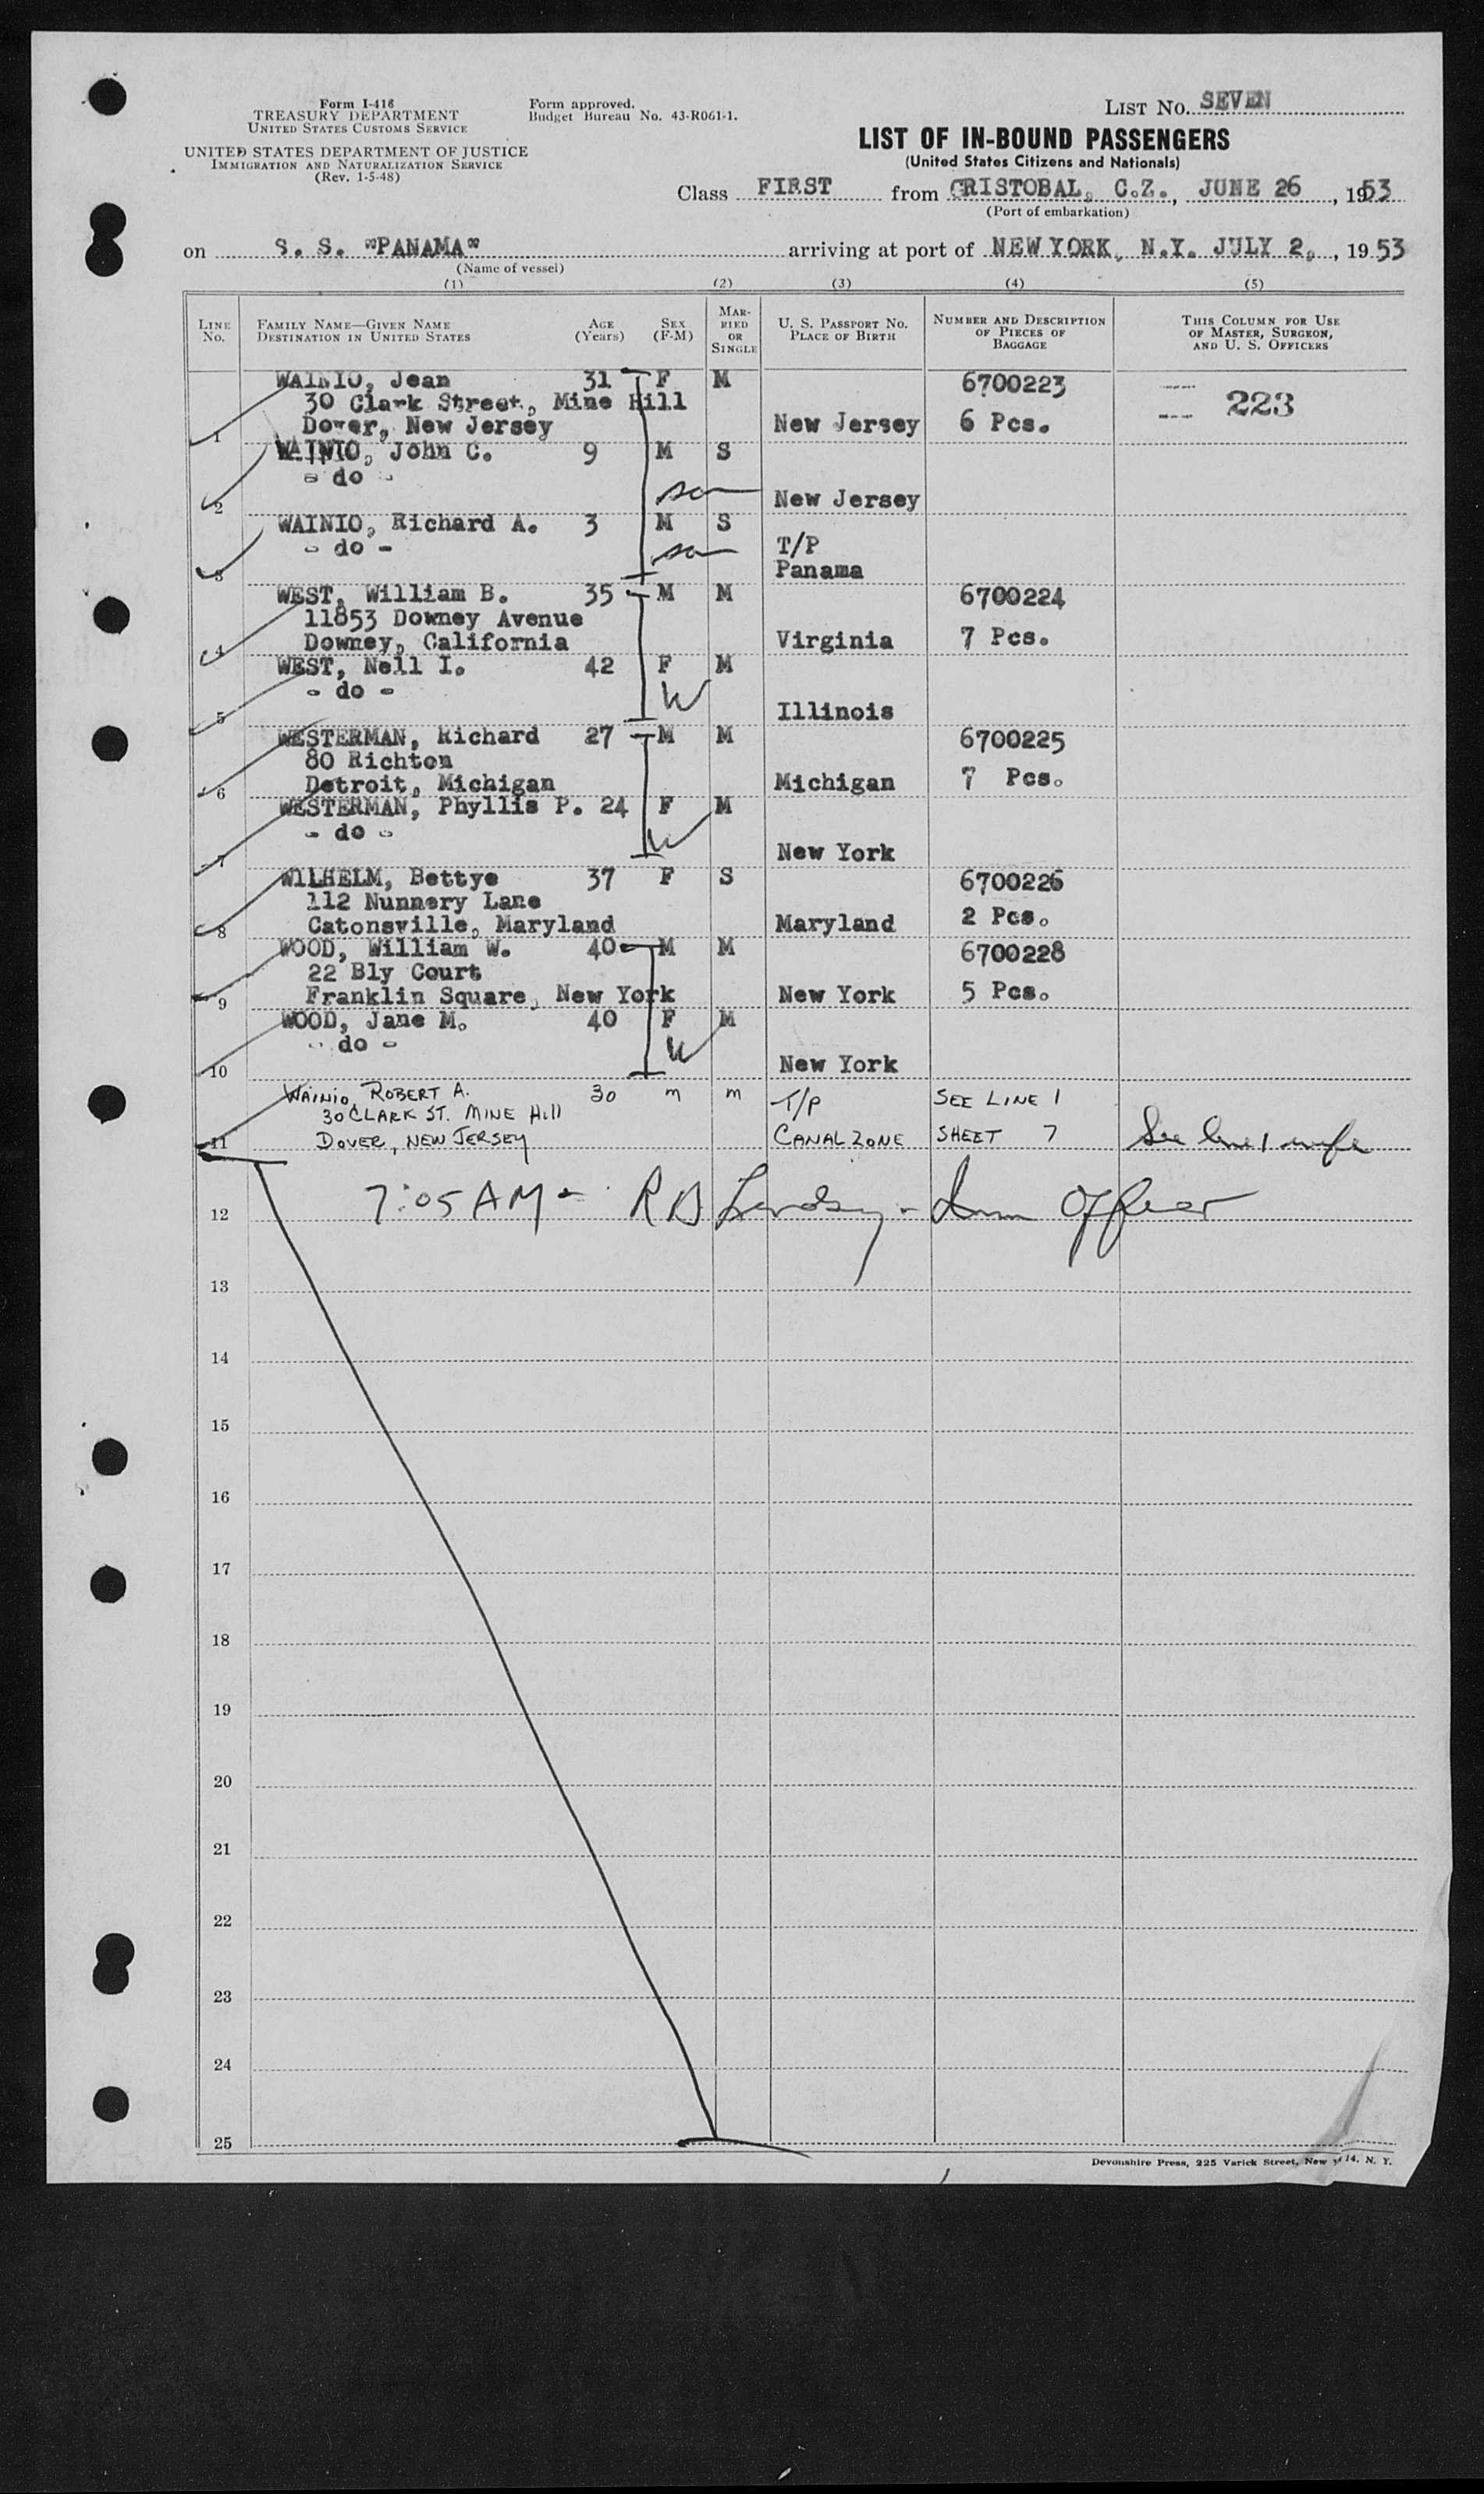 Form I-416
TREASURY DEPARTMENT
UNITED STATES CUSTOMS SERVICE
UNITED STATES DEPARTMENT OF JUSTICE
IMMIGRATION AND NATURALIZATION SERVICE
(Rev. 1-5-48)
Form approved.
Budget Bureau No. 43-R061-1.
LIST NO. SEVEN
LIST OF IN-BOUND PASSENGERS
(United States Citizens and Nationals)
Class FIRST from CRISTOBAL, C.Z., JUNE 26, 1953
(Port of embarkation)
on S. S. "PANAMA" arriving at port of NEW YORK, N.Y. JULY 2, 1953
(Name of vessel)
(1) (2) (3) (4) (5)
LINE NO. FAMILY NAME—GIVEN NAME DESTINATION IN UNITED STATES AGE (Years) SEX (F-M) MARRIED OR SINGLE U. S. PASSPORT NO. PLACE OF BIRTH NUMBER AND DESCRIPTION OF PIECES OF BAGGAGE THIS COLUMN FOR USE OF MASTER, SURGEON, AND U. S. OFFICERS
WAINIO, Jean 31 F M 6700223
30 Clark Street, Mine Hill 223
1 Dover, New Jersey New Jersey 6 Pcs.
WAINIO, John C. 9 M S
- do -
2 son New Jersey
WAINIO, Richard A. 3 M S
- do - son T/P
3 Panama
WEST, William B. 35 M M 6700224
11853 Downey Avenue
4 Downey, California Virginia 7 Pcs.
WEST, Nell I. 42 F M
- do - W
5 Illinois
WESTERMAN, Richard 27 M M 6700225
80 Richton
6 Detroit, Michigan Michigan 7 Pcs.
WESTERMAN, Phyllis P. 24 F M
- do - W
7 New York
WILHELM, Bettye 37 F S 6700226
112 Nunnery Lane
8 Catonsville, Maryland Maryland 2 Pcs.
WOOD, William W. 40 M M 6700228
22 Bly Court
9 Franklin Square, New York New York 5 Pcs.
WOOD, Jane M. 40 F M
- do - W
10 New York
WAINIO, ROBERT A. 30 m m T/P SEE LINE 1
30 CLARK ST. MINE Hill
11 DOVER, NEW JERSEY CANAL ZONE SHEET 7 See line 1 wife
12 7:05 AM - R B Lindsay - Imm Officer
13
14
15
16
17
18
19
20
21
22
23
24
25
Devonshire Press, 225 Varick Street, New 14, N. Y.